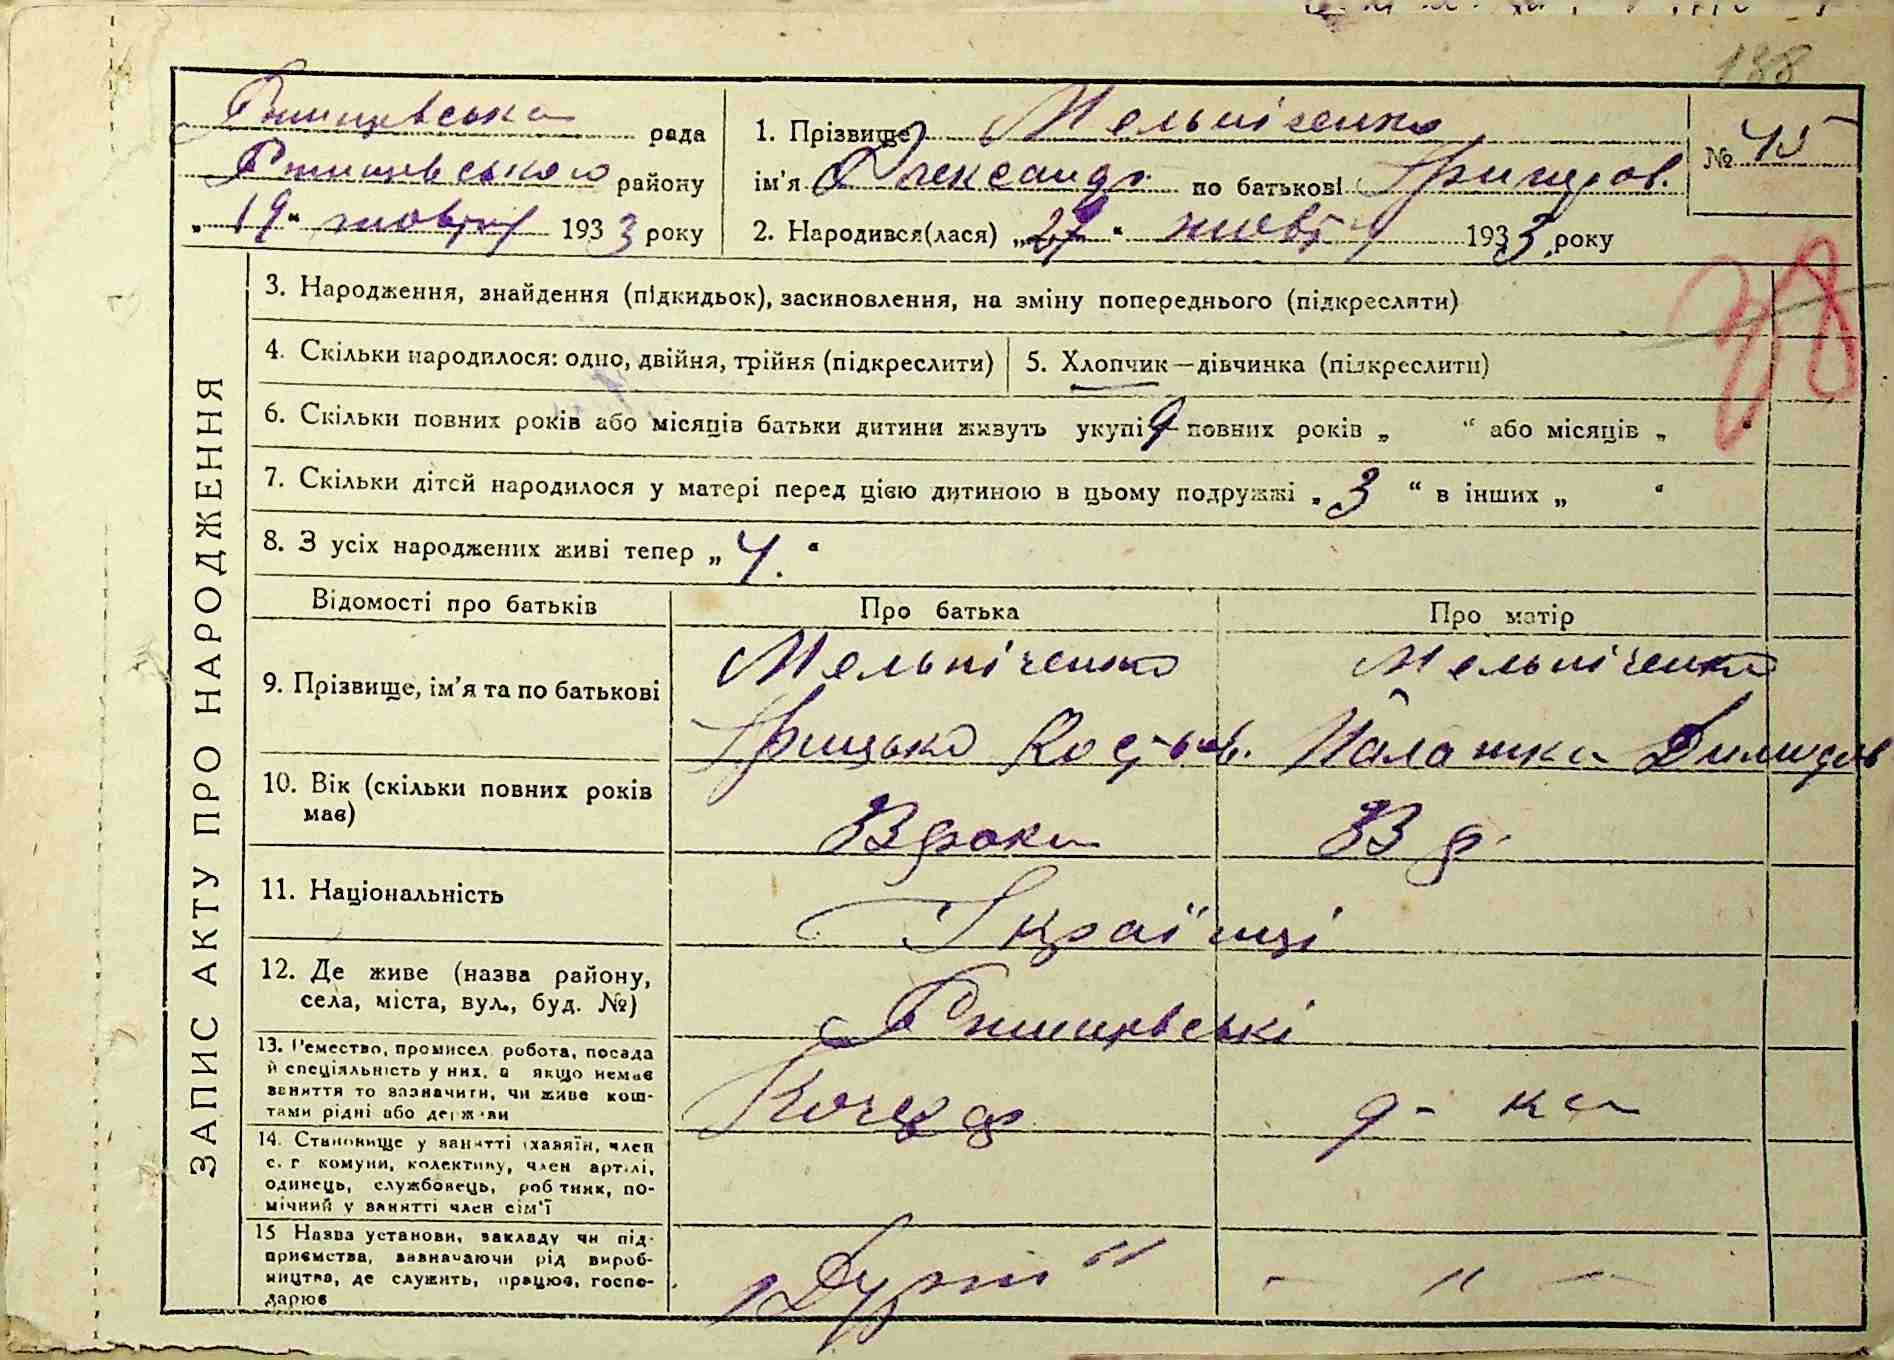 188
Ржищевська рада
Ржищевського району
„ 19 “ жовтня 1933 року
1. Прізвище Мельніченко
ім'я Олександр по батькові Григоров.
№ 45
2. Народився(лася) „ “ жовтня 1933 року
ЗАПИС АКТУ ПРО НАРОДЖЕННЯ
3. Народження, знайдення (підкидьок), засиновлення, на зміну попереднього (підкреслити)
4. Скільки народилося: одно, двійня, трійня (підкреслити)
5. Хлопчик—дівчинка (підкреслити)
6. Скільки повних років або місяців батьки дитини живуть укупі 9 повних років „ “ або місяців „ “
7. Скільки дітей народилося у матері перед цією дитиною в цьому подружжі „ 3 “ в інших „ “
8. З усіх народжених живі тепер „ 4. “
Відомості про батьків
Про батька
Про матір
9. Прізвище, ім'я та по батькові
Мельніченко
Грицько Костьов.
Мельніченко
Палажка
10. Вік (скільки повних років
має)
33 роки
33 р.
11. Національність
Українці
12. Де живе (назва району,
села, міста, вул., буд. №)
Ржищевські
13. Ремество, промисел, робота, посада
й спеціяльність у них, а якщо немає
заняття то зазначити, чи живе кош-
тами рідні або держави
д-ка
14. Становище у занятті (хазяїн, член
с. г комуни, колективу, член артілі,
одинець, службовець, робітник, по-
мічний у занятті член сім'ї
15 Назва установи, закладу чи під-
приємства, зазначаючи рід вироб-
ництва, де служить, працює, госпо-
дарює
- " -